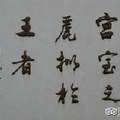 宮室之
麗擬於
王者